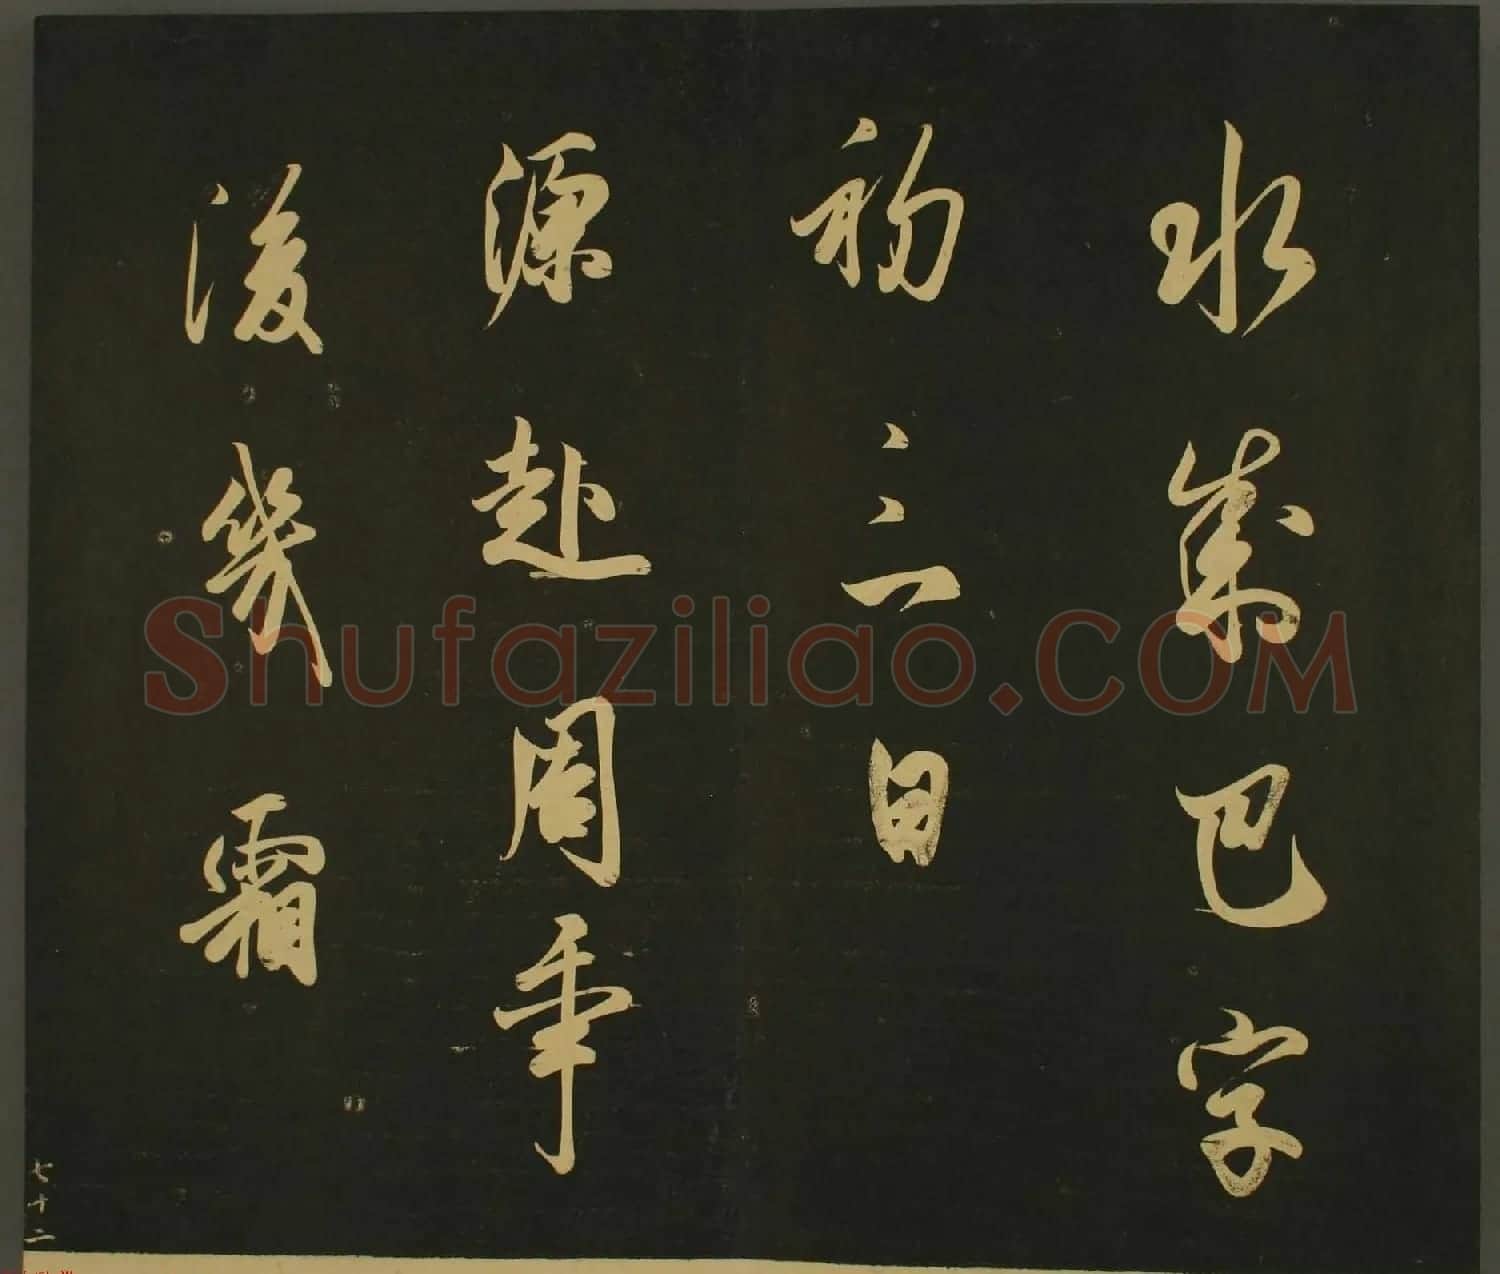 水巴字
初三日
源赴周年
後幾霜
七十二
Shufaziliao.COM